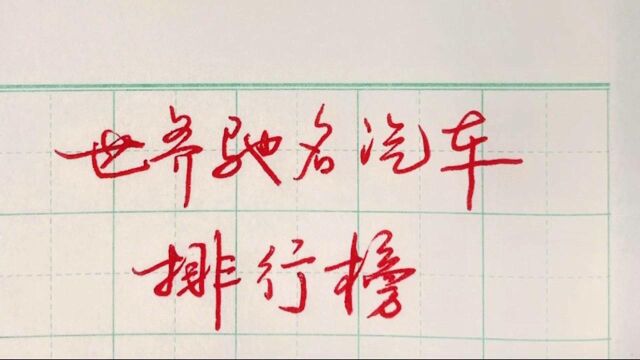 世界驰名汽车
排行榜